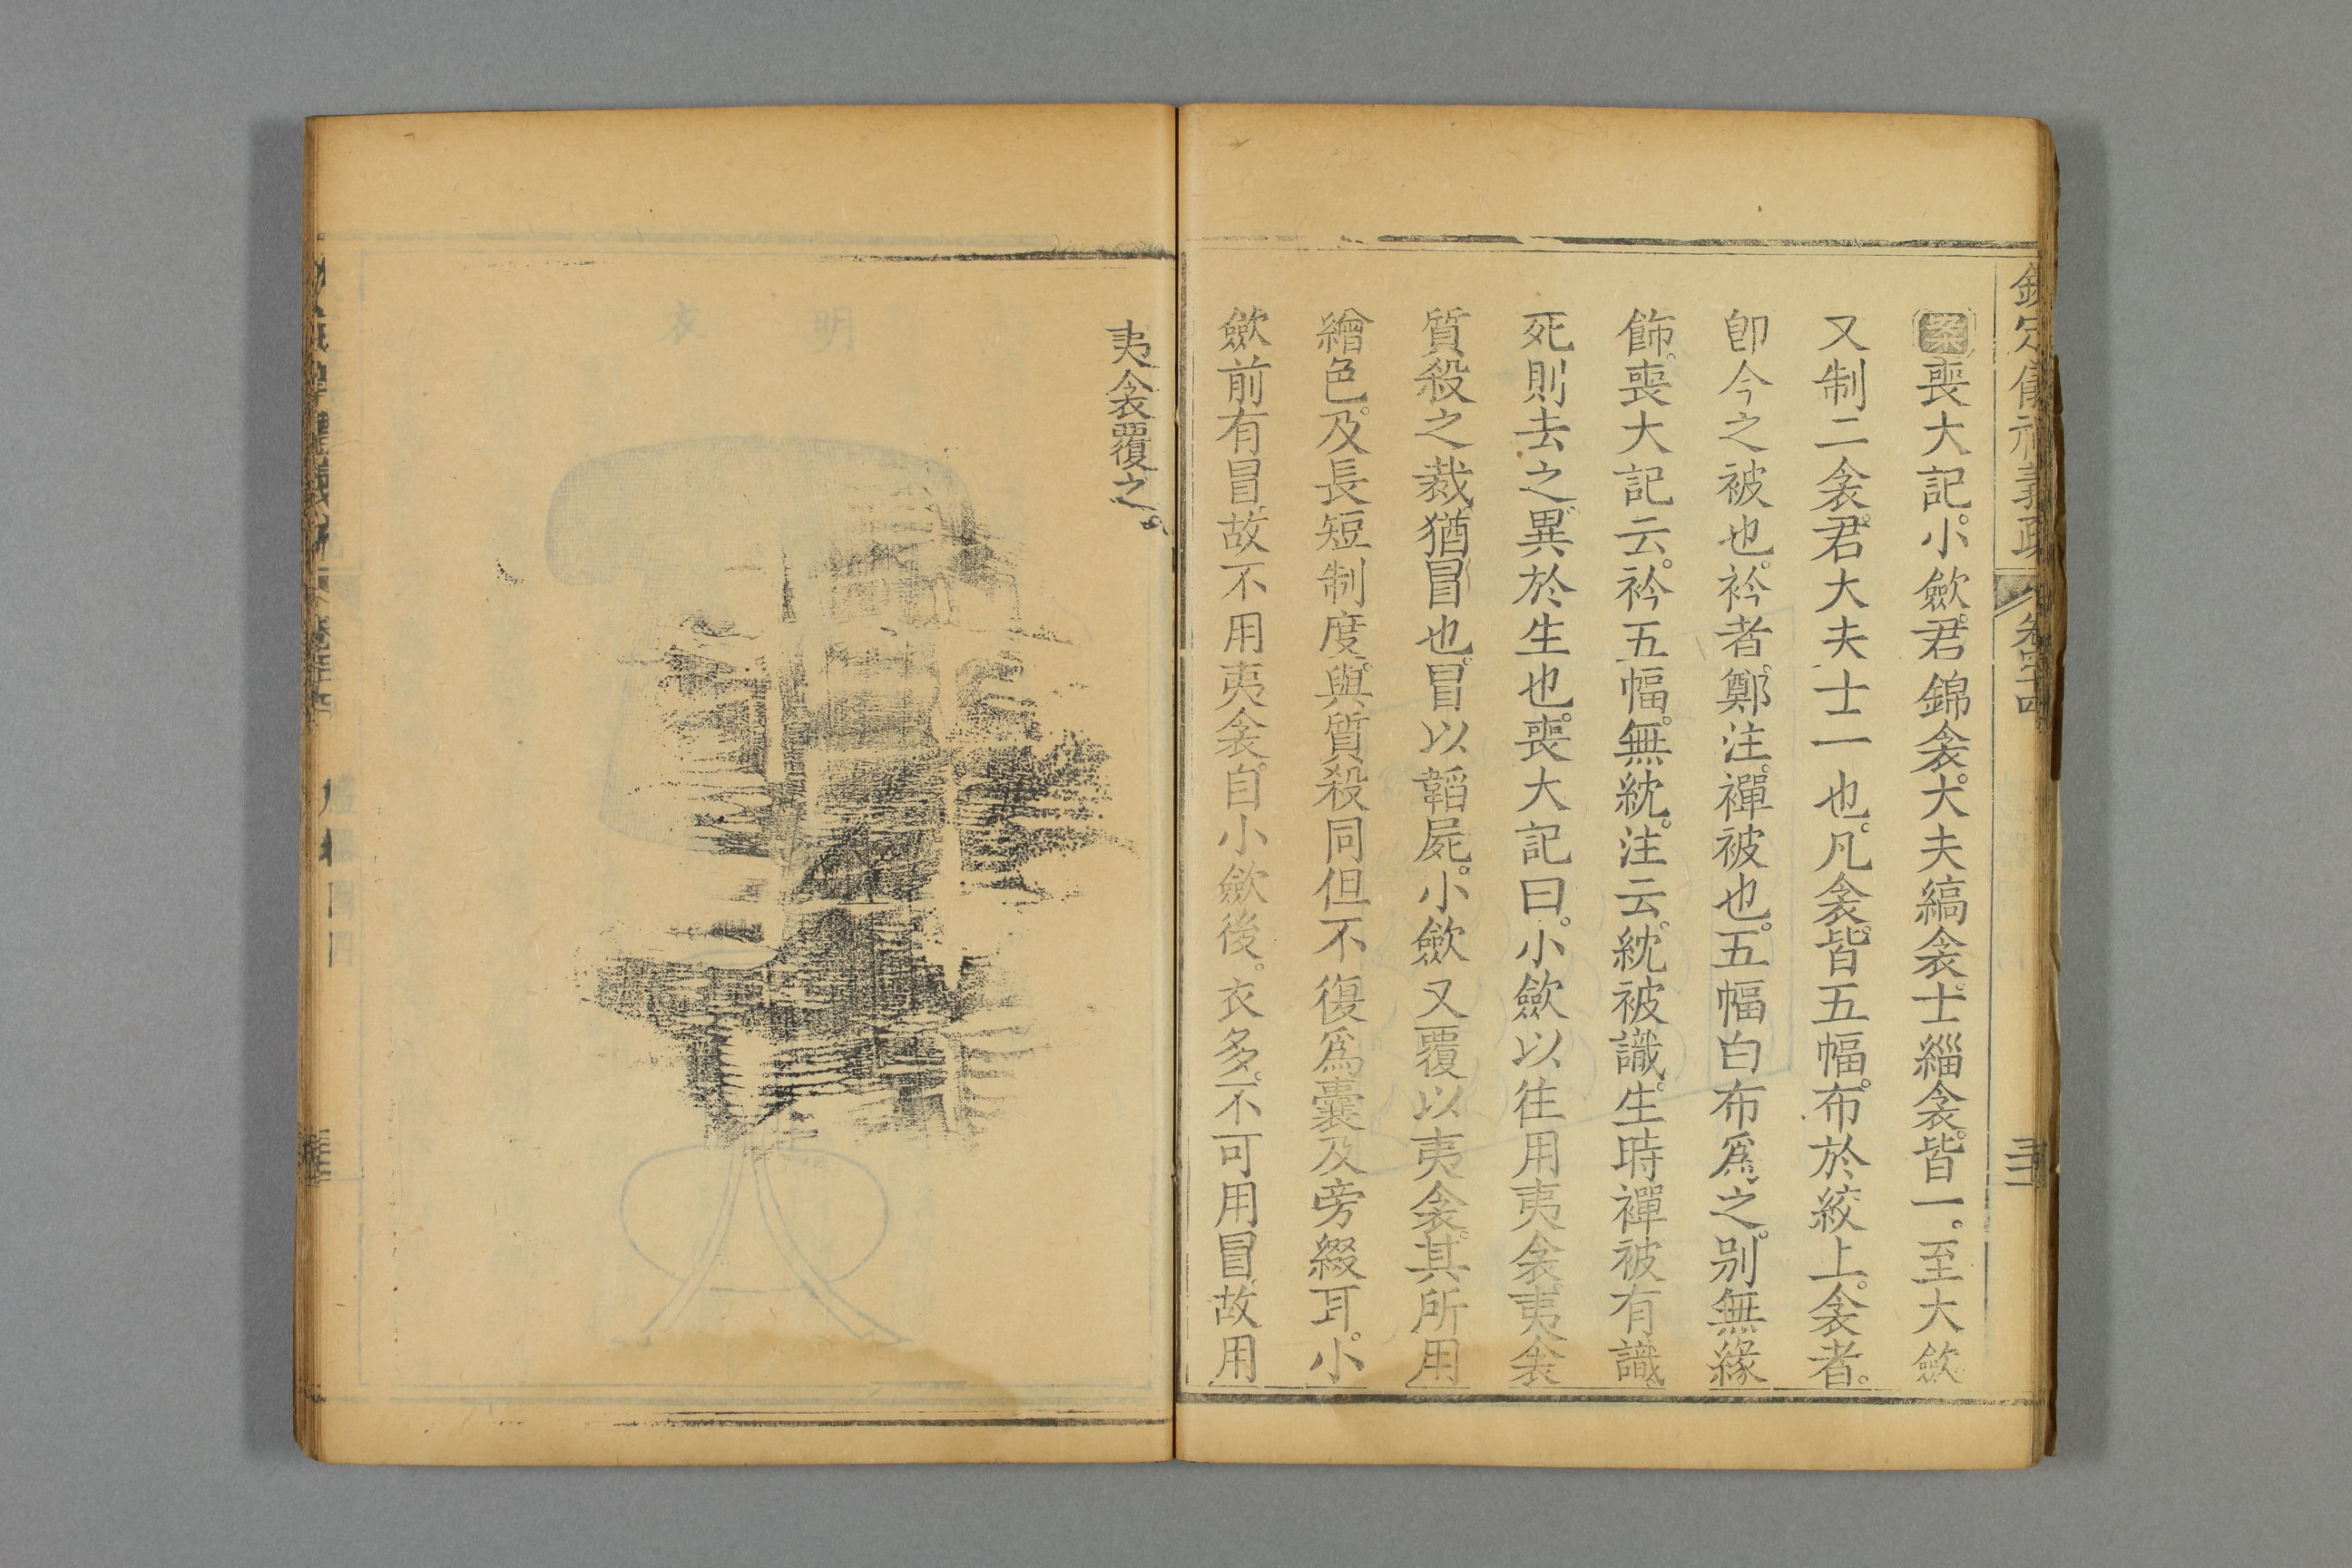 欽定儀禮義疏 卷四十四
案喪大記。小歛。君錦衾。大夫縞衾。士緇衾。皆一。至大歛。
又制二衾。君大夫士一也。凡衾皆五幅。布於絞上。衾者。
卽今之被也。衿者。鄭注。襌被也。五幅白布爲之。别無緣
飾。喪大記云。衿五幅。無紞。注云。紞被識。生時襌被有識。
死則去之。異於生也。喪大記曰。小歛以往用夷衾。夷衾
質殺之裁猶冒也。冒以韜屍。小歛又覆以夷衾。其所用
繒色。及長短制度。與質殺同。但不復爲囊及旁綴耳。小
歛前有冒。故不用夷衾。自小歛後。衣多。不可用冒。故用
夷衾覆之。